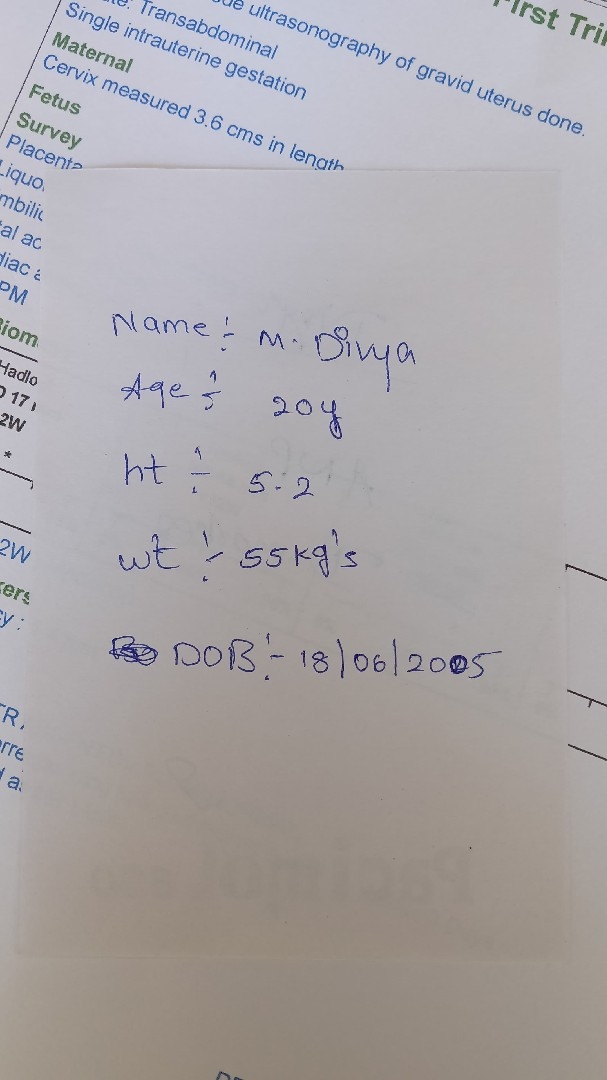 First Tri
ultrasonography of gravid uterus done.
Transabdominal
Single intrauterine gestation
Maternal
Cervix measured 3.6 cms in length
Fetus
Survey
Placenta
Liquo
mbilic
tal ac
diac a
PM
Biom
Hadlo
17
2W
*
2W
kers
cy :
TR,
orre
d a
Name :- M. Divya
Age :- 20y
ht :- 5.2
wt :- 55kg's
DOB :- 18/06/2005